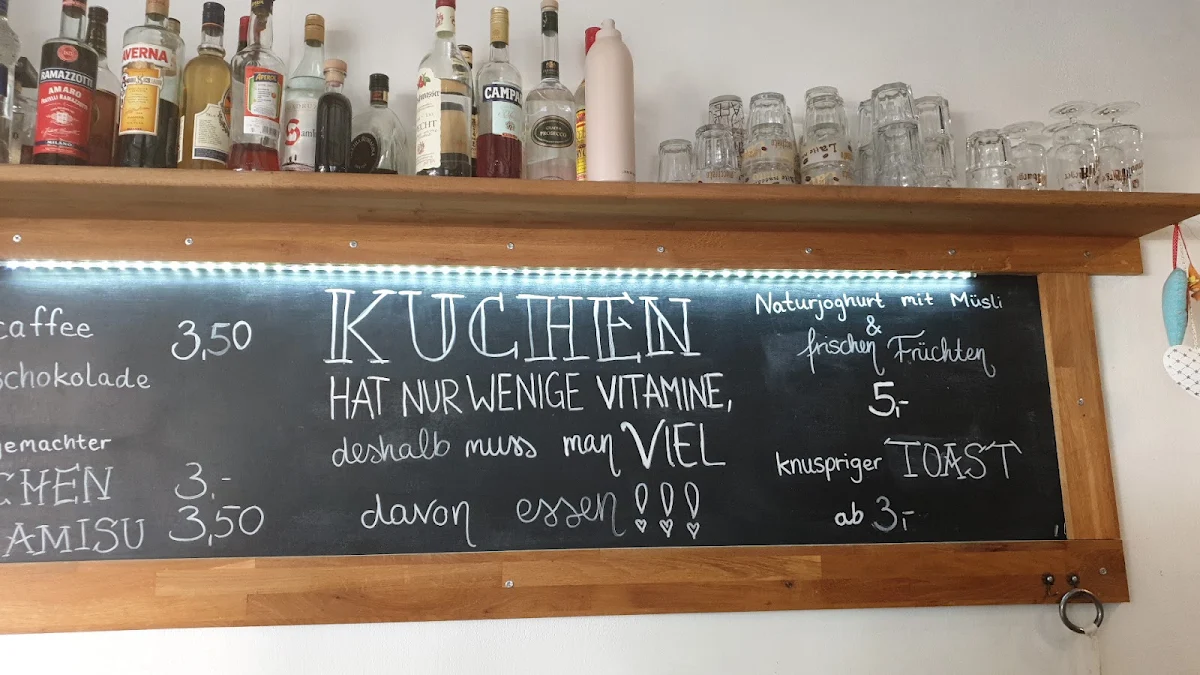 RAMAZZOTTI
AMARO
MILANO
AVERNA
APEROL
CAMPA
PROSECCO
Latte
caffee 3,50
schokolade
gemachter
CHEN 3.-
AMISU 3,50
KUCHEN
HAT NUR WENIGE VITAMINE,
deshalb muss man VIEL
davon essen !!!
Naturjoghurt mit Müsli
&
frischen Früchten
5,-
knuspriger TOAST
ab 3,-